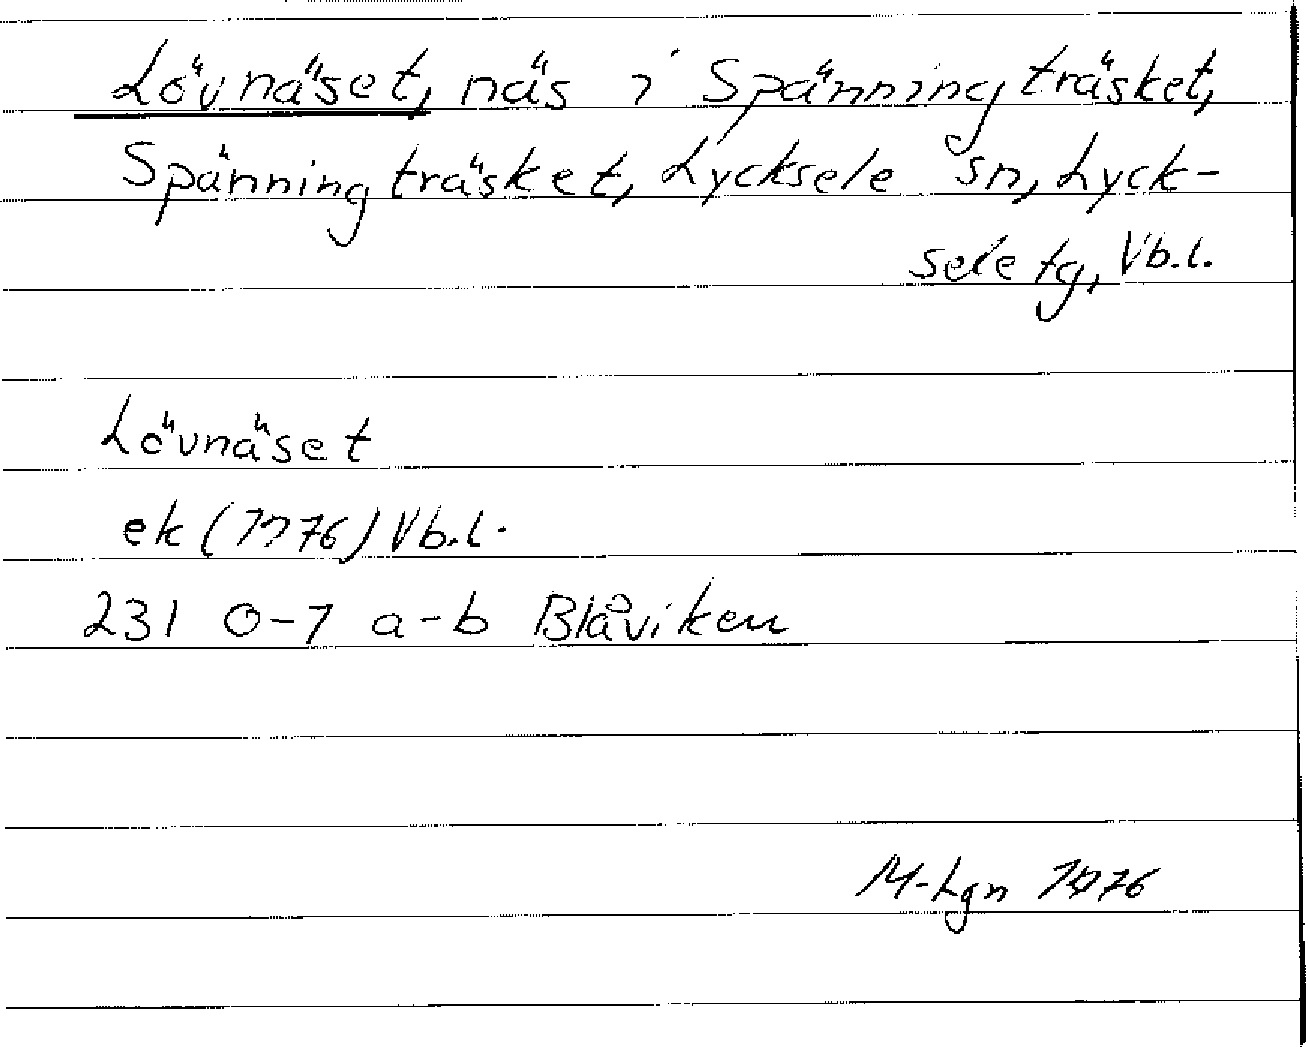 Lövnäset, näs i Spänningträsket,
Spänningträsket, Lycksele sn, Lyck-
sele tg, Vb.l.
Lövnäset
ek (1976) Vb.l.
231 0-1 a-b Blåviken
M-Lgn 1976